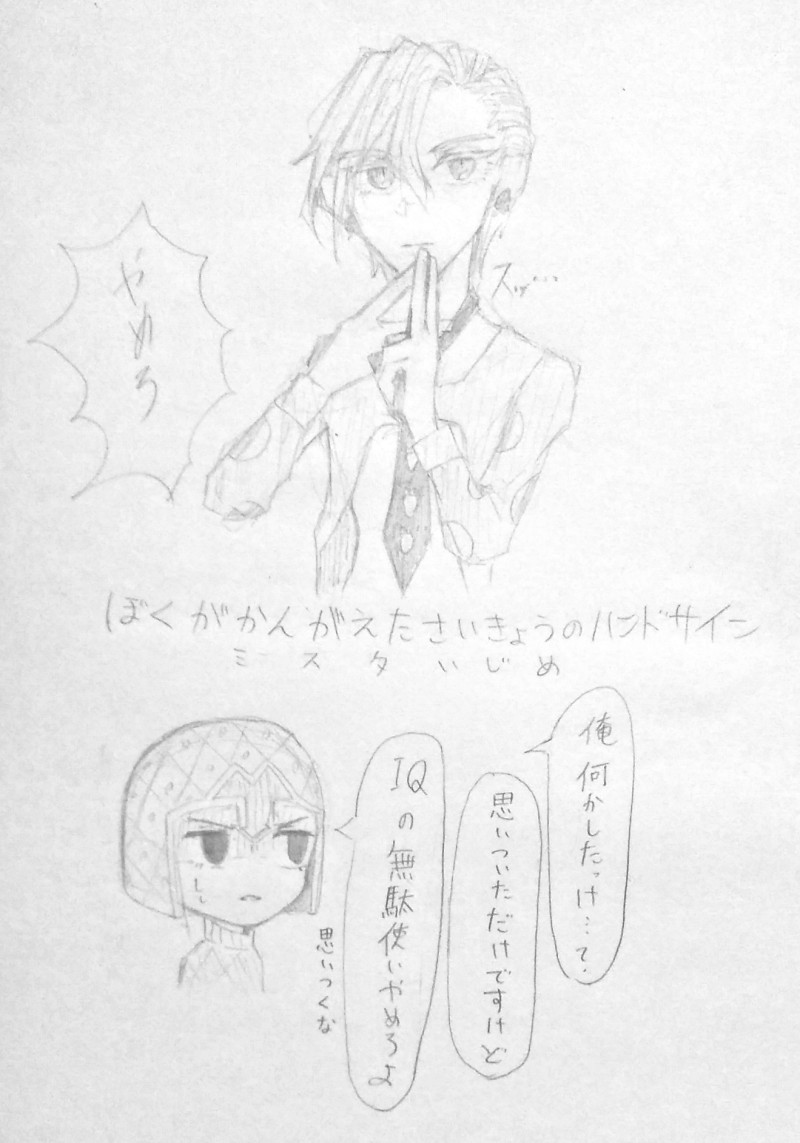 やめろ
スッ…
ぼくがかんがえたさいきょうのハンドサイン
ミスタいじめ
俺何かしたっけ…て.
思いついただけですけど
IQの無駄使いやめろよ
思いつくな